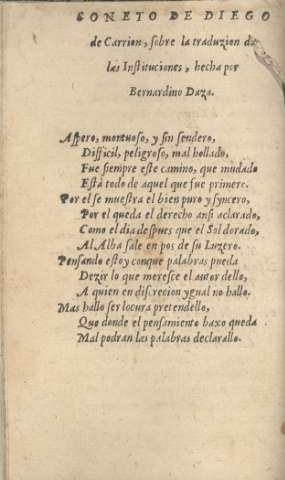 SONETO DE DIEGO
de Carrion, sobre la traduzion de
las Instituciones, hecha por
Bernardino Daza.
Aspero, montuoso, y sin sendero,
Difficil, peligroso, mal hollado,
Fue siempre este camino, que mudado
Està todo de aquel que fue primero.
Por el se muestra el bien puro y syncero,
Por el queda el derecho ansi aclarado,
Como el dia despues que el Sol dorado,
Al Alba sale en pos de su Luzero.
Pensando estoy con que palabras pueda
Dezir lo que meresce el autor dello,
A quien en discrecion ygual no hallo.
Mas hallo ser locura pretendello,
Que donde el pensamiento baxo queda
Mal podran las palabras declarallo.